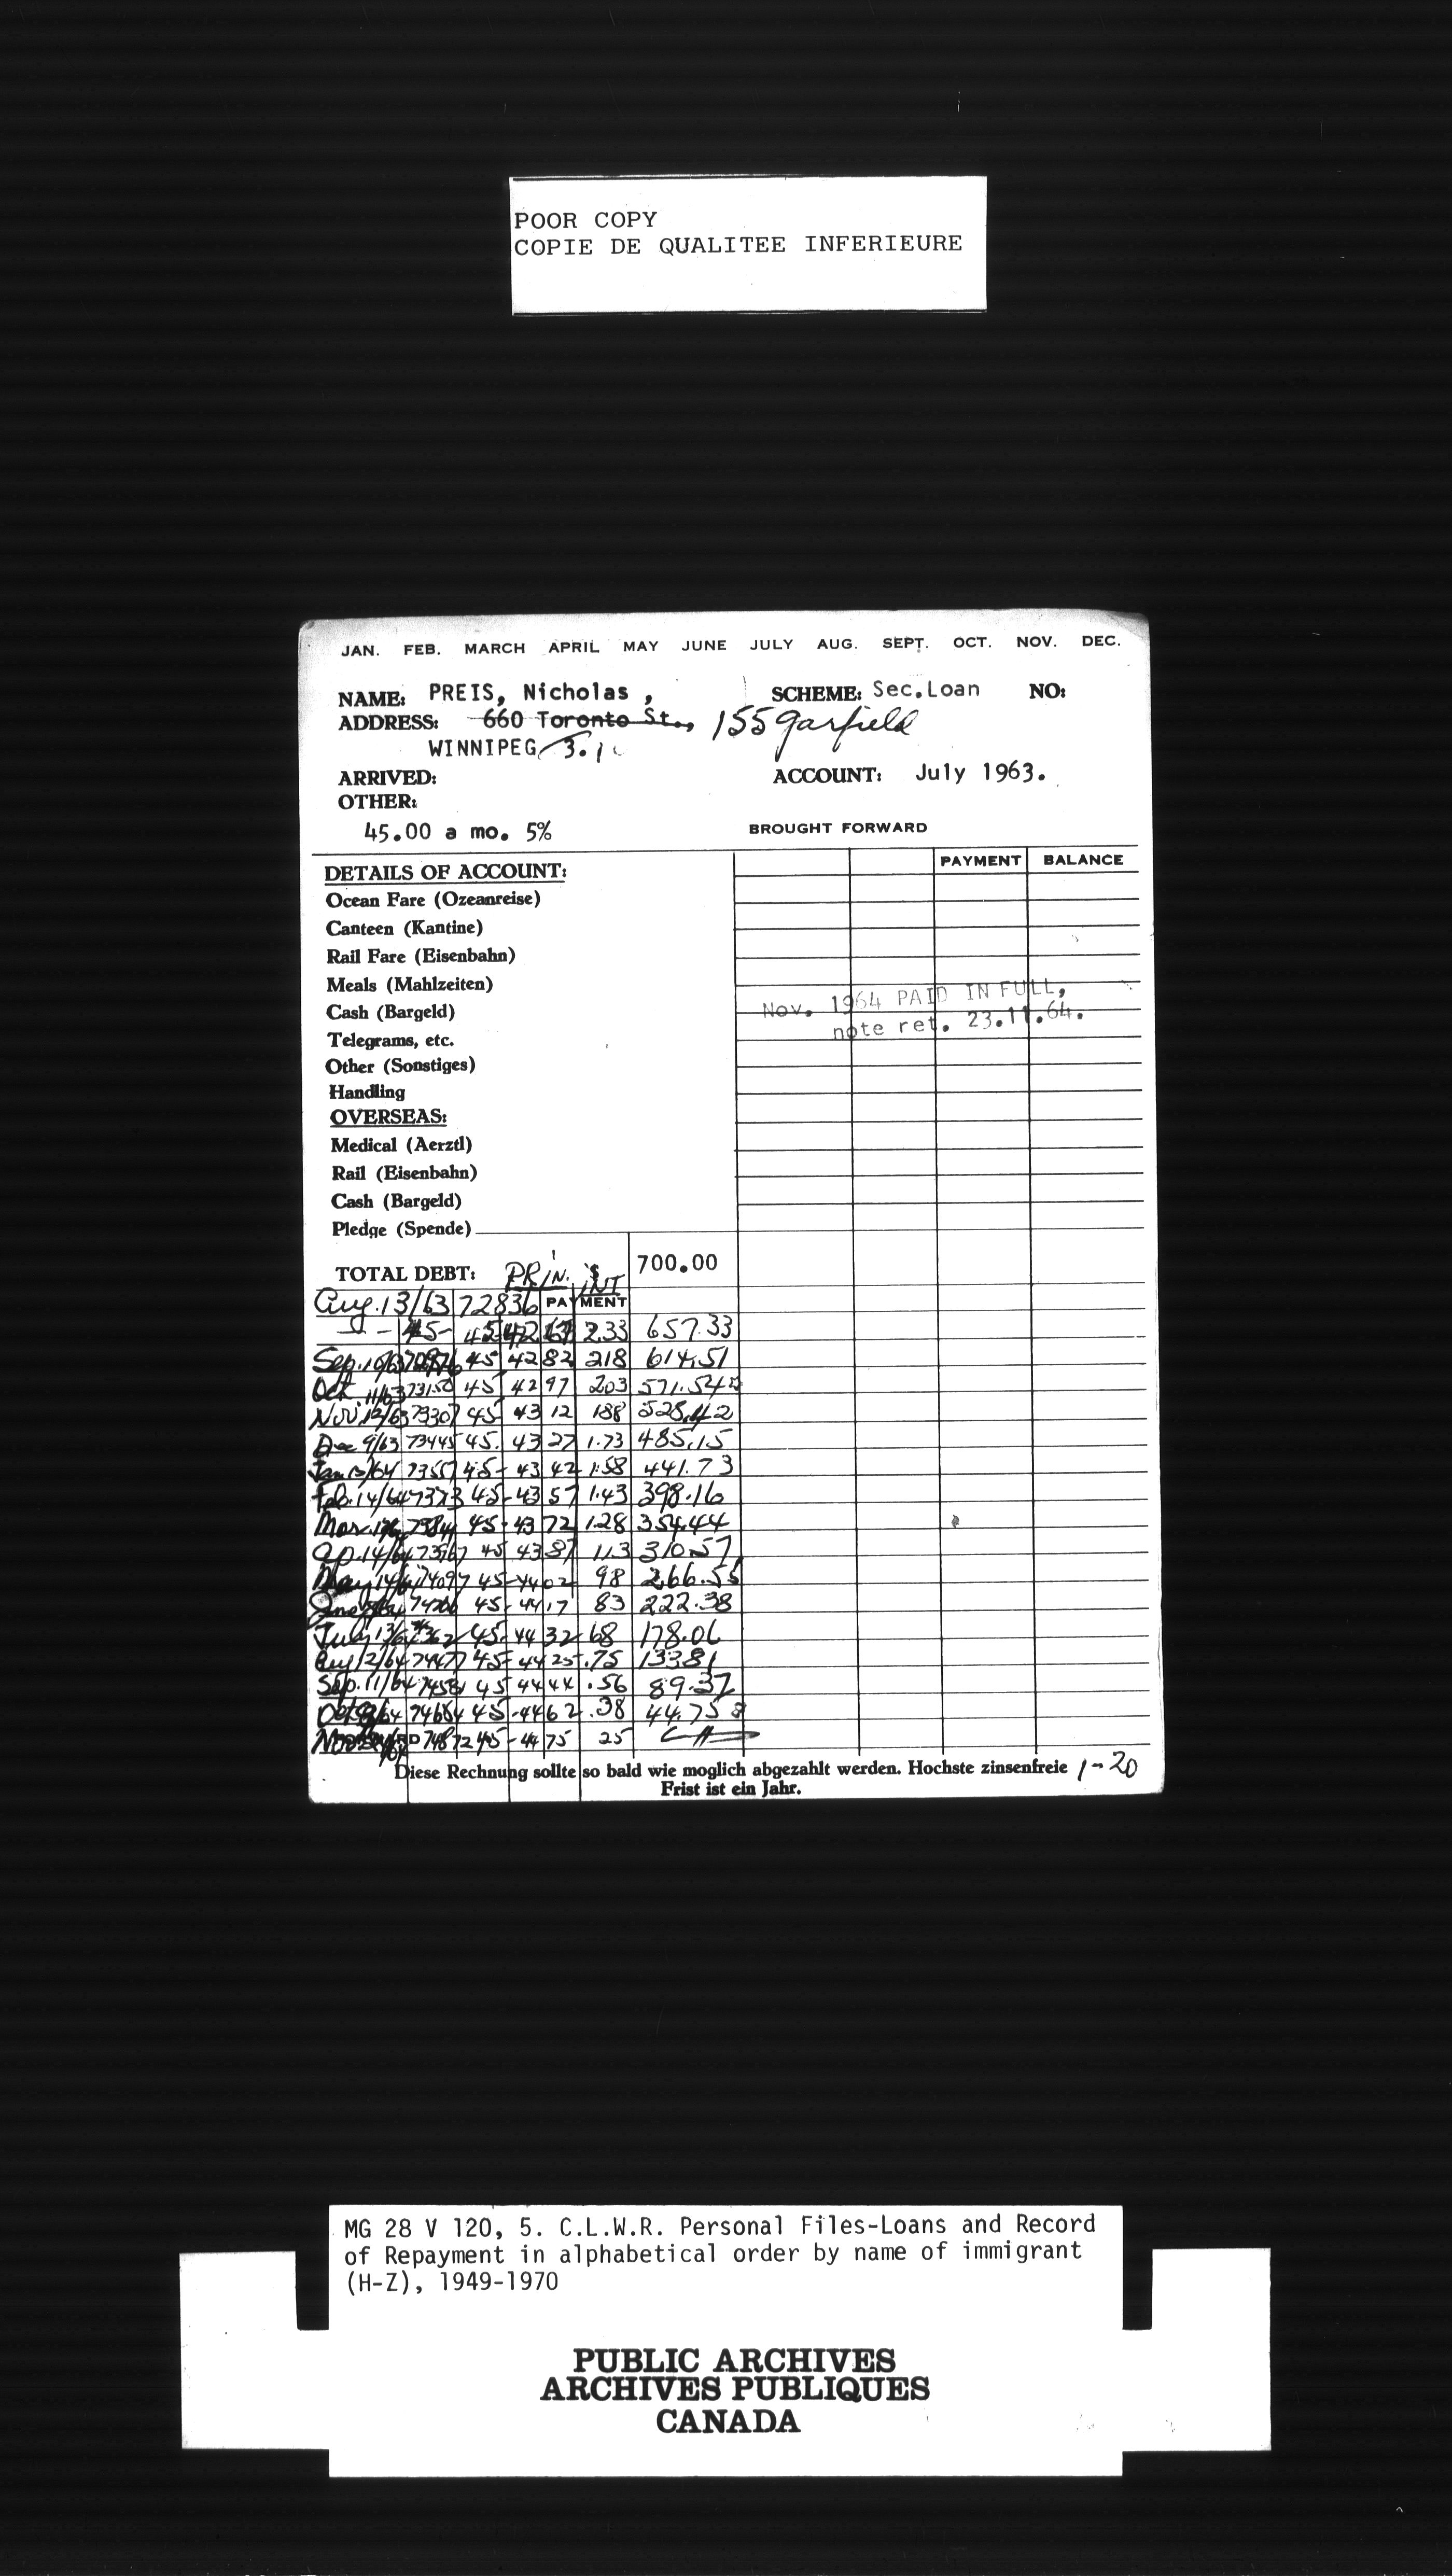 POOR COPY
COPIE DE QUALITEE INFERIEURE
JAN. FEB. MARCH APRIL MAY JUNE JULY AUG. SEPT. OCT. NOV. DEC.
NAME: PREIS, Nicholas , SCHEME: Sec.Loan NO:
ADDRESS: 660 Toronto St., 155 Garfield
WINNIPEG 3.
ARRIVED: ACCOUNT: July 1963.
OTHER:
45.00 a mo. 5% BROUGHT FORWARD
PAYMENT BALANCE
DETAILS OF ACCOUNT:
Ocean Fare (Ozeanreise)
Canteen (Kantine)
Rail Fare (Eisenbahn)
Meals (Mahlzeiten)
Nov. 1964 PAID IN FULL,
Cash (Bargeld)
note ret. 23.11.64.
Telegrams, etc.
Other (Sonstiges)
Handling
OVERSEAS:
Medical (Aerztl)
Rail (Eisenbahn)
Cash (Bargeld)
Pledge (Spende)
TOTAL DEBT: PRIN. INT 700.00
Aug. 13/63 72836 PAYMENT
45- 42 67 2.33 657.33
Sep. 45 42 82 218 614.51
Oct 11/63 73150 45 42 97 203 571.54
Nov. 12/63 73307 45 43 12 188 528.42
Dec 9/63 73445 45. 43 27 1.73 485.15
Jan 45- 43 42 1.58 441.73
Feb. 14/64 73713 45- 43 57 1.43 398.16
Mar 45- 43 72 1.28 354.44
Ap. 14/64 45 43 87 113 310.57
May 14/64 74097 45- 44 02 98 266.55
June 45- 44 17 83 222.38
July 13/64 45. 44 32 68 178.06
Aug 12/64 74477 45- 44 25 .75 133.81
Sep. 11/64 74581 45 44 44 .56 89.37
Oct 74684 45- 44 62 .38 44.75
Nov 74872 45- 44 75 25
Diese Rechnung sollte so bald wie moglich abgezahlt werden. Hochste zinsenfreie 1-20
Frist ist ein Jahr.
MG 28 V 120, 5. C.L.W.R. Personal Files-Loans and Record
of Repayment in alphabetical order by name of immigrant
(H-Z), 1949-1970
PUBLIC ARCHIVES
ARCHIVES PUBLIQUES
CANADA